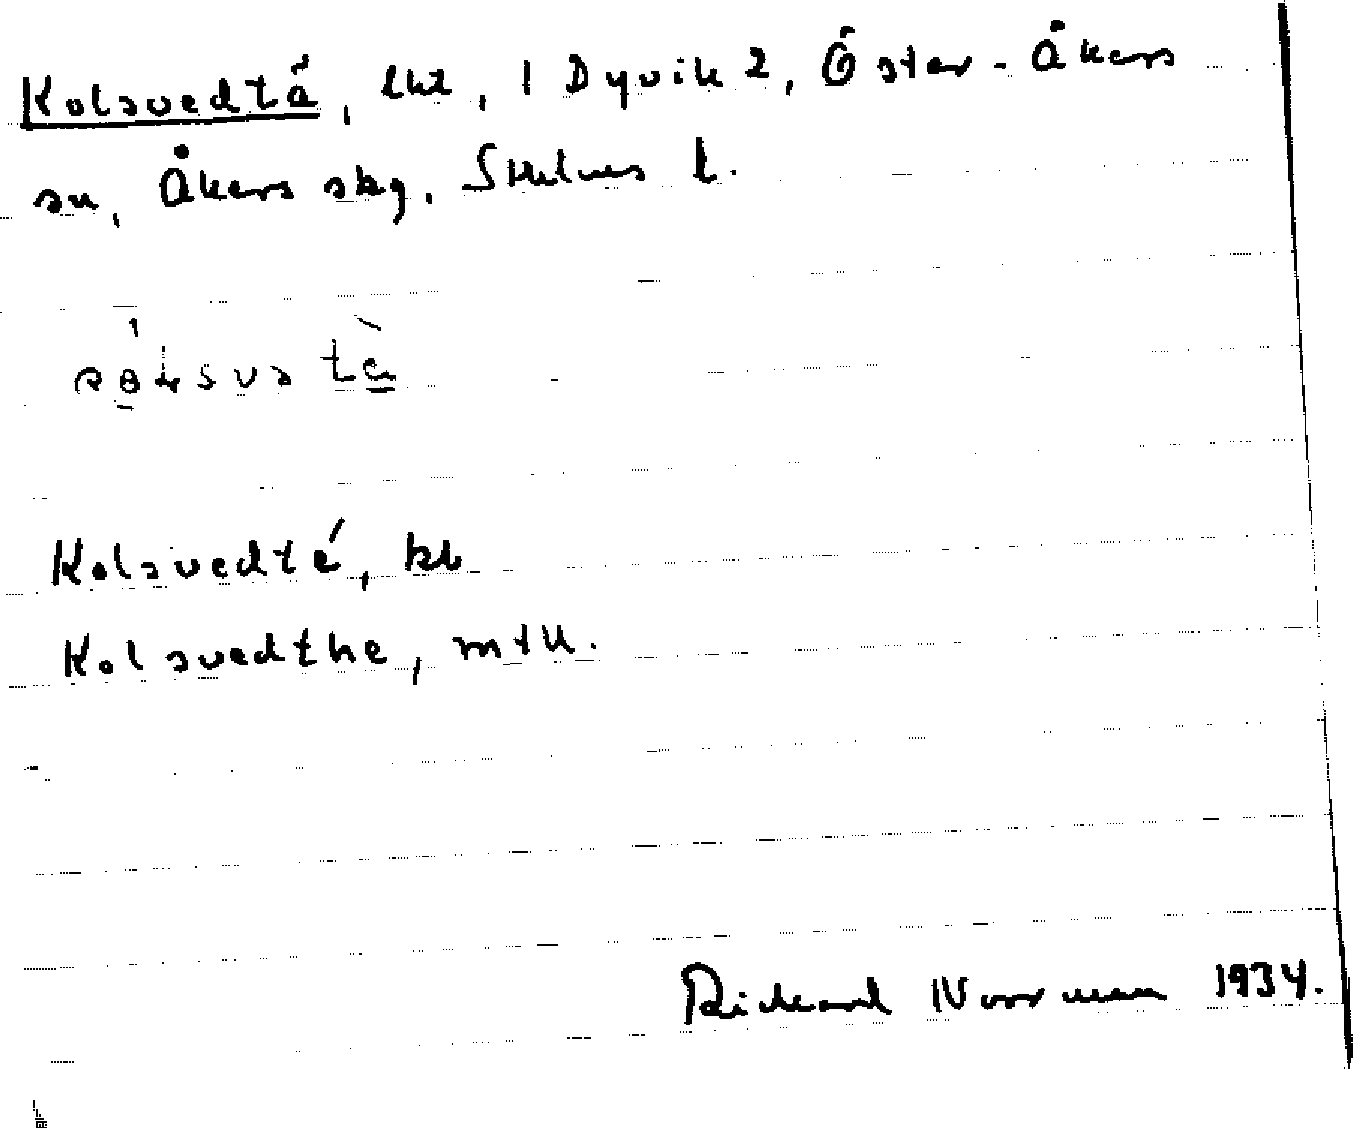 Kolsvedtå, lht, 1 Dyvik 2, Öster-Åkers
sn, Åkers skg, Sthlms l.
Kolsvedté, kb
Kolsvedthe, mtk.
Rickard Norrman 1934.